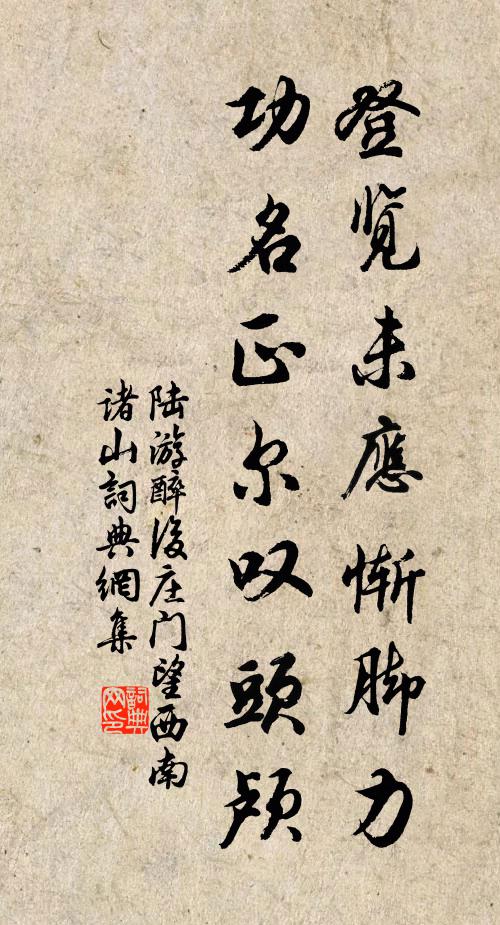 登览未應惭脚力
功名正尔叹頭颅
陆游醉後庄门望西南
诸山詞典網集
詞典
网印